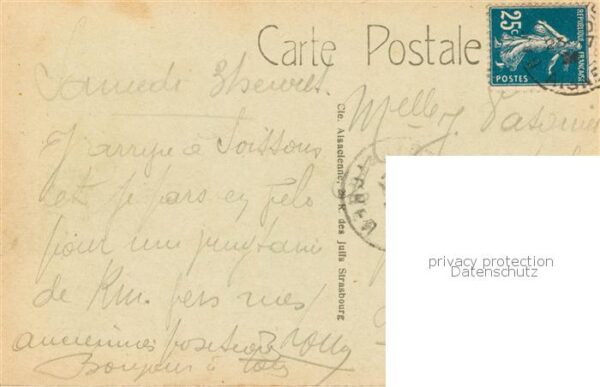 Carte Postale
25c
RÉPUBLIQUE FRANÇAISE
POSTES
Samedi 3 heures.
Melle J.
J'arrive à Soissons
et je pars en vélo
pour une
de Km. vers mes
anciennes positions
Bonjour à tous
Cie. Alsacienne, R. des Juifs Strasbourg
privacy protection
Datenschutz